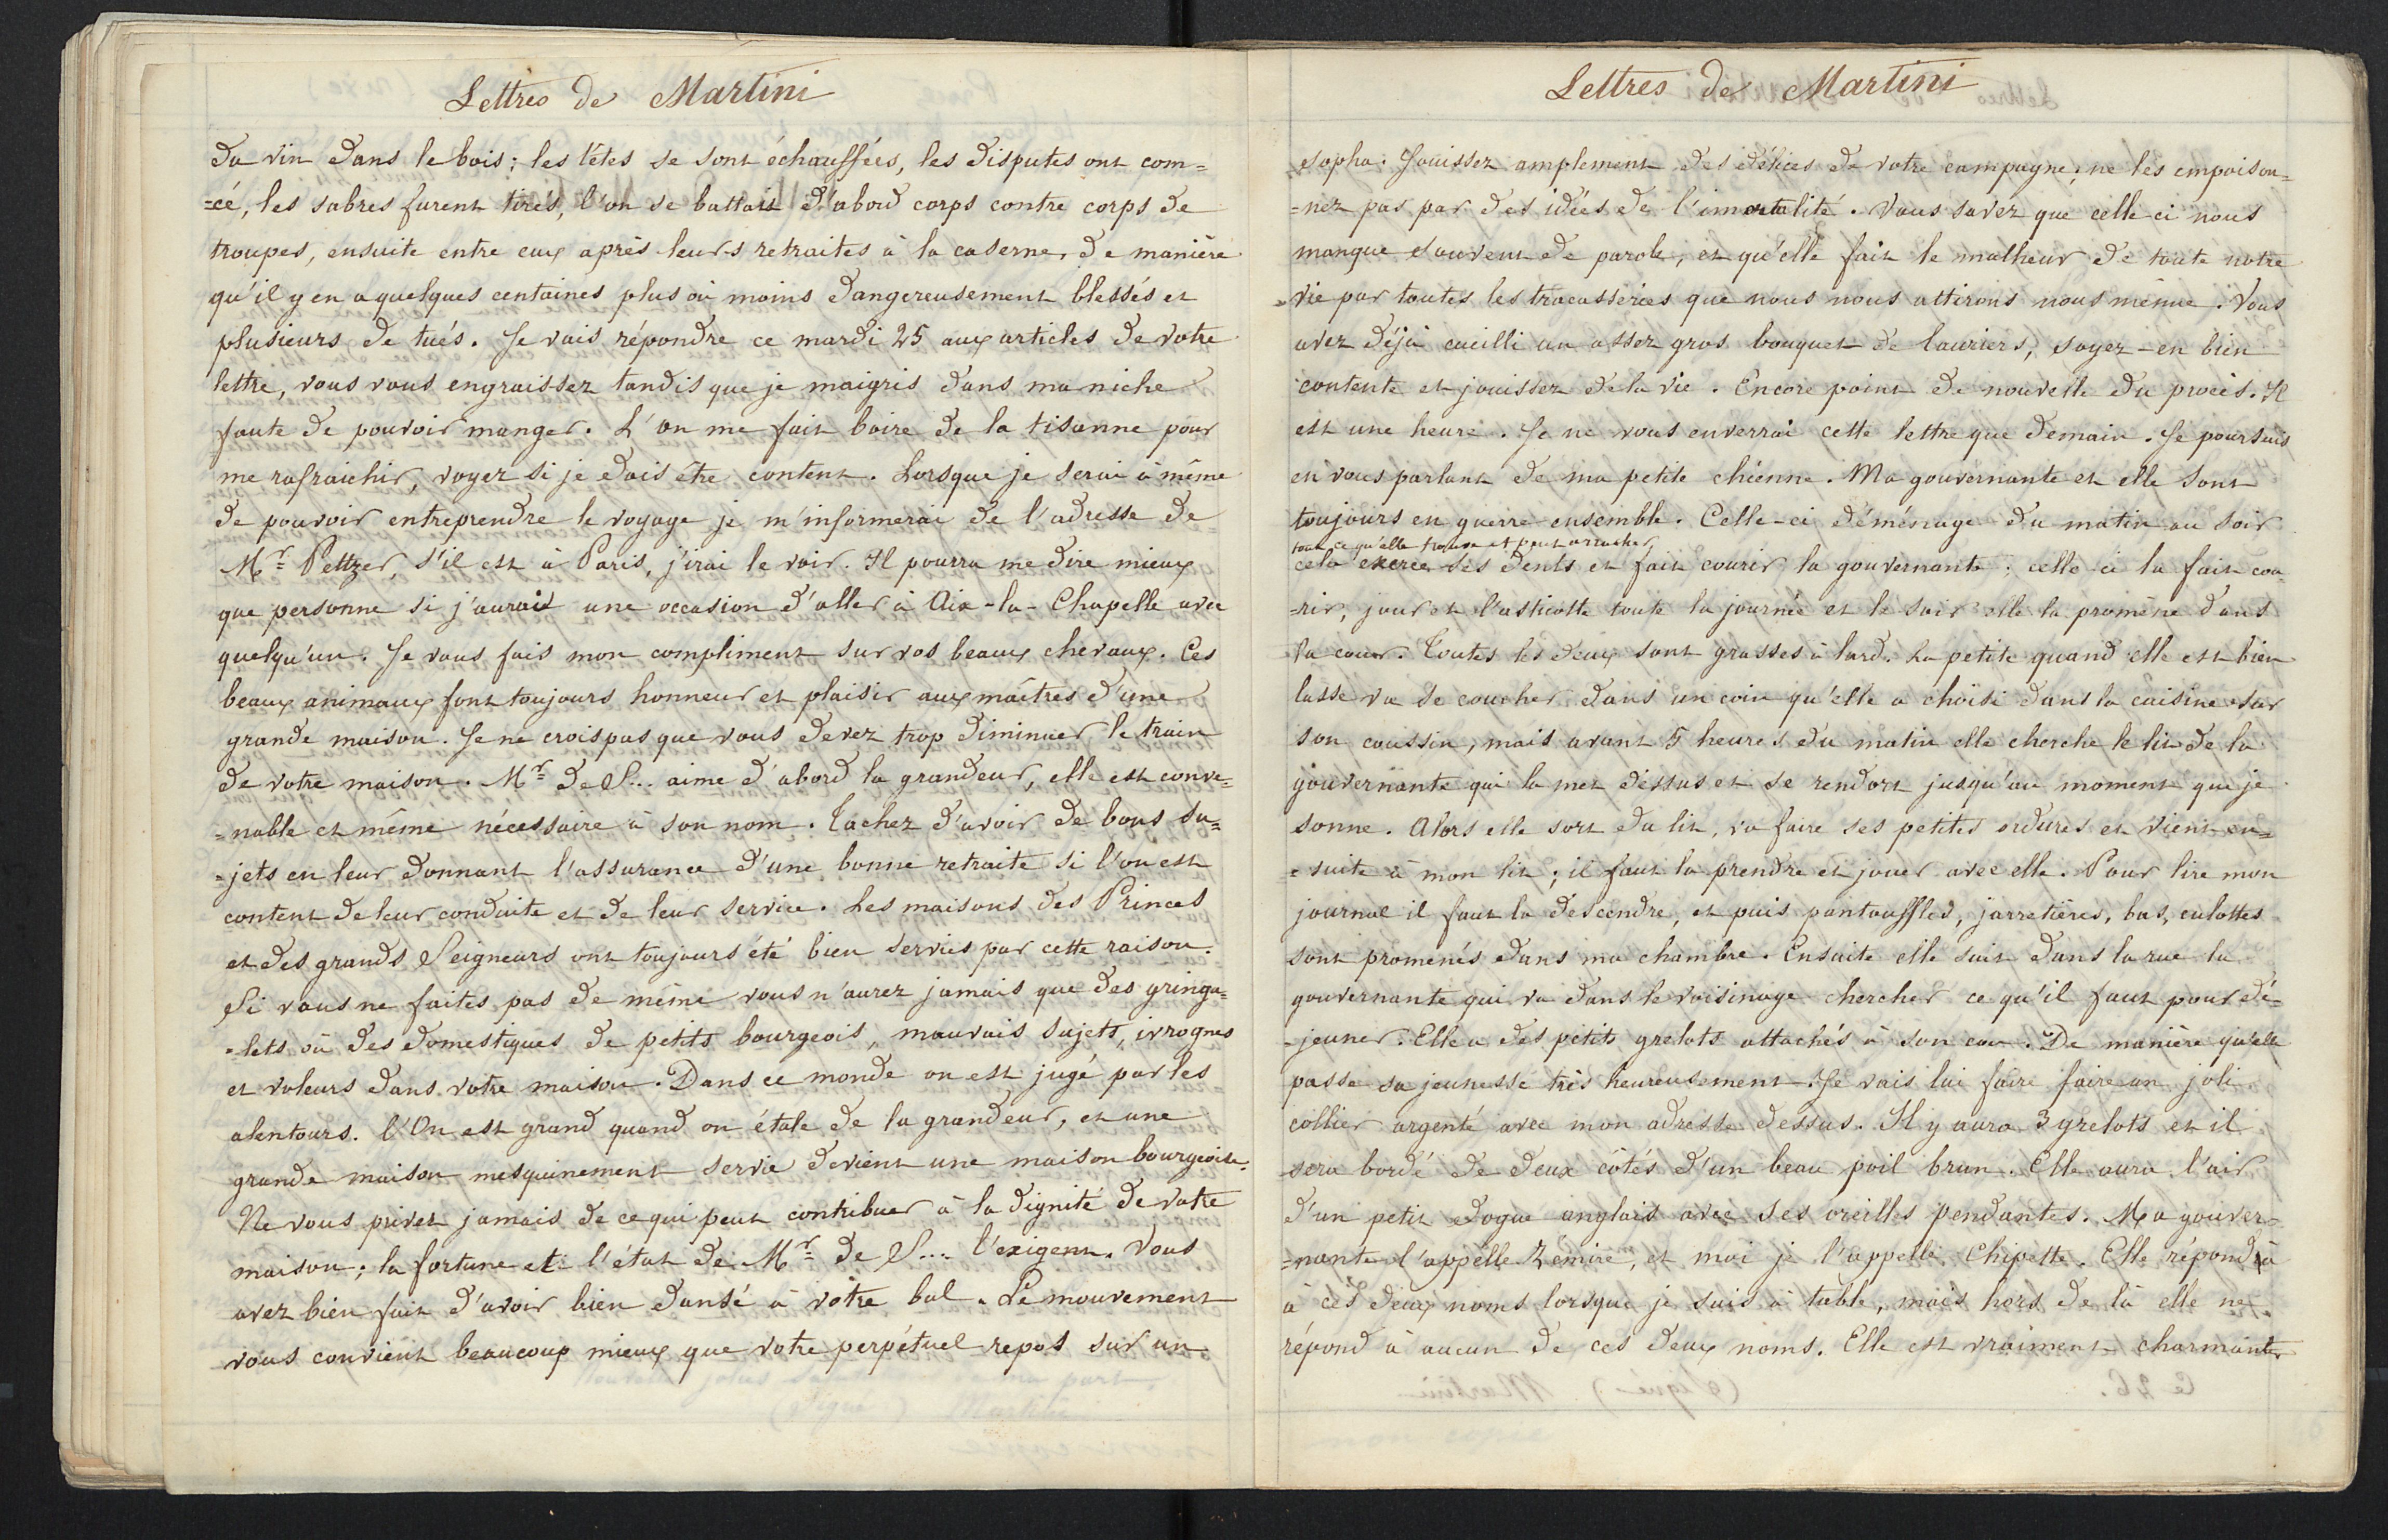 Lettres de Martini
du vin dans le bois; les têtes se sont échauffées, les disputes ont com=
=cé, les sabres furent tirés, l'on se battait d'abord corps contre corps de
troupes, ensuite entre eux après leurs retraites à la caserne, de manière
qu'il y en a quelques centaines plus où moins dangereusement blessés et
plusieurs de tués. Je vais répondre ce mardi 25 aux articles de votre
lettre, vous vous engraissez tandis que je maigris dans ma niche
faute de pouvoir manger. L'on me fait boire de la tisanne pour
me rafraichir, voyez si je dois être content. Lorsque je serai à même
de pouvoir entreprendre le voyage je m'informerai de l'adresse de
Mr Peltzer, s'il est à Paris, j'irai le voir. Il pourra me dire mieux
que personne si j'aurais une occasion d'aller à Aix-la-Chapelle avec
quelqu'un. Je vous fais mon compliment sur vos beaux chevaux. Ces
beaux animaux font toujours honneur et plaisir aux maîtres d'une
grande maison. Je ne crois pas que vous devez trop diminuer le train
de votre maison. Mr de S... aime d'abord la grandeur, elle est conve=
=nable et même nécessaire à son nom. Tachez d'avoir de bons su=
=jets en leur donnant l'assurance d'une bonne retraite si l'on est
content de leur conduite et de leur service. Les maisons des Princes
et des grands Seigneurs ont toujours été bien servies par cette raison.
Si vous ne faites pas de même vous n'aurez jamais que des gringa=
=lets où des domestiques de petits bourgeois, mauvais sujets, ivrognes
et voleurs dans votre maison. Dans ce monde on est jugé par les
alentours. l'On est grand quand on étale de la grandeur, et une
grande maison mesquinement servie devient une maison bourgeoise.
Ne vous privez jamais de ce qui peut contribuer à la dignité de votre
maison; la fortune et l'état de Mr de S... l'exigent. Vous
avez bien fait d'avoir bien dansé à vôtre bal. Le mouvement
vous convient beaucoup mieux que votre perpétuel repos sur un
Lettres de Martini
sopha. Jouissez amplement des délices de votre campagne, ne les empoison=
=nez pas par des idées de l'imortalité. Vous savez que celle ci nous
manque souvent de parole, et qu'elle fait le malheur de toute notre
vie par toutes les tracasseries que nous nous attirons nous même. Vous
avez déjà cueilli un assez gros bouquet de lauriers, soyez-en bien
contente et jouissez de la vie. Encore point de nouvelle du procès. Il
est une heure. Je ne vous enverrai cette lettre que demain. Je poursuis
en vous parlant de ma petite chienne. Ma gouvernante et elle sont
toujours en guerre ensemble. Celle-ci déménage du matin au soir
tout ce qu'elle trouve et peut arracher,
cela exerce ses dents et fait courir la gouvernante; celle-ci la fait cou
=rir, jouer et l'asticotte toute la journée et le soir elle la promène dans
la cour. Toutes les deux sont grasses à lard. La petite quand elle est bien
lasse va se coucher dans un coin qu'elle a choisi dans la cuisine sur
son coussin, mais avant 5 heures du matin elle cherche le lit de la
gouvernante qui la met dessus et se rendort jusqu'au moment que je
sonne. Alors elle sort du lit, va faire ses petites ordures et vient en=
=suite à mon lit; il faut la prendre et jouer avec elle. Pour lire mon
journal il faut la descendre, et puis pantouffles, jarretières, bas, culottes
sont promenés dans ma chambre. Ensuite elle suit dans la rue la
gouvernante qui va dans le voisinage chercher ce qu'il faut pour dé-
-jeuner. Elle a des petits grelots attachés à son cou. De manière qu'elle
passe sa jeunesse très heureusement. Je vais lui faire faire un joli
collier argenté avec mon adresse dessus. Il y aura 3 grelots et il
sera bordé de deux côtés d'un beau poil brun. Elle aura l'air
d'un petit dogue anglais avec ses oreilles pendantes. Ma gouver=
=nante l'appelle Zémire, et moi je l'appelle Chipette. Elle répond à
à ces deux noms lorsque je suis à table, mais hors de là elle ne
répond à aucun de ces deux noms. Elle est vraiment charmante